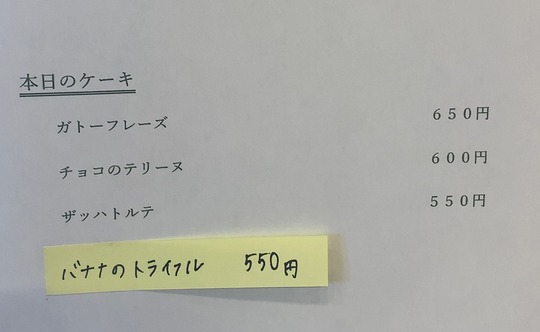 本日のケーキ
ガトーフレーズ ６５０円
チョコのテリーヌ ６００円
ザッハトルテ ５５０円
バナナのトライフル 550円